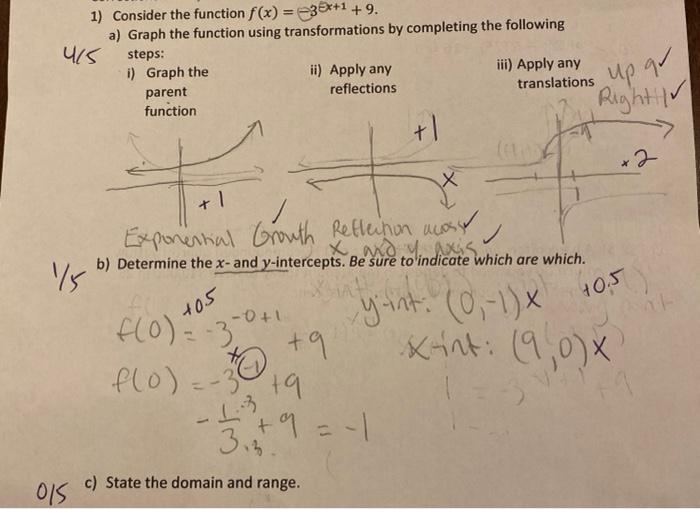 1) Consider the function f(x) = -3^(-x+1) + 9.
a) Graph the function using transformations by completing the following steps:
4/5
i) Graph the parent function
ii) Apply any reflections
iii) Apply any translations
up 9 ✓
Right 1 ✓
+1
+1
x
x 2
Exponential Growth ✓
Reflection across x and y axis ✓
b) Determine the x- and y-intercepts. Be sure to indicate which are which.
1/5
+0.5
f(0) = -3^(-0+1) + 9
y-int: (0,-1) x
+0.5
f(0) = -3^(-1) + 9
x-int: (9,0) x
-1/3 ·3 ·3 + 9 = -1
c) State the domain and range.
0/5